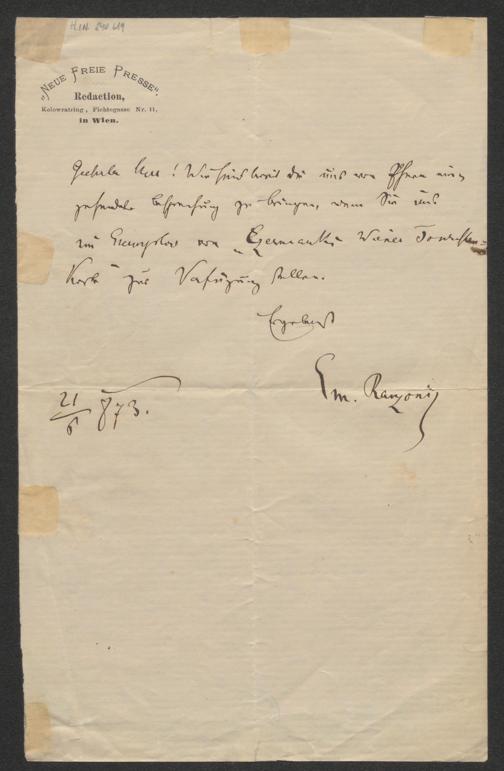 H.I.N. 240 619
„NEUE FREIE PRESSE“.
Redaction,
Kolowratring, Fichtegasse Nr. 11,
in Wien.
Geehrter Herr! Wir sind bereit die uns von Ihnen
Besprechung zu bringen, wenn Sie uns
ein Exemplar von Czermak's Wiener
Korb" zur Verfügung stellen.
Ergebenst
Em. Ranzoni
21/6 873.